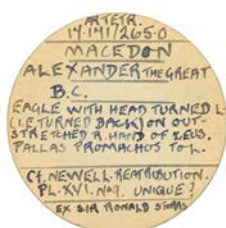 AR TETR.
17·171/265·0
MACEDON
ALEXANDER THE GREAT
B.C.
EAGLE WITH HEAD TURNED L.
(I.E TURNED BACK) ON OUT-
STRETCHED R. HAND OF ZEUS.
PALLAS PROMACHOS TO L.
Cf. NEWELL. REATTRIBUTION.
PL. XVI. No 9. UNIQUE?
EX SIR RONALD STORRS